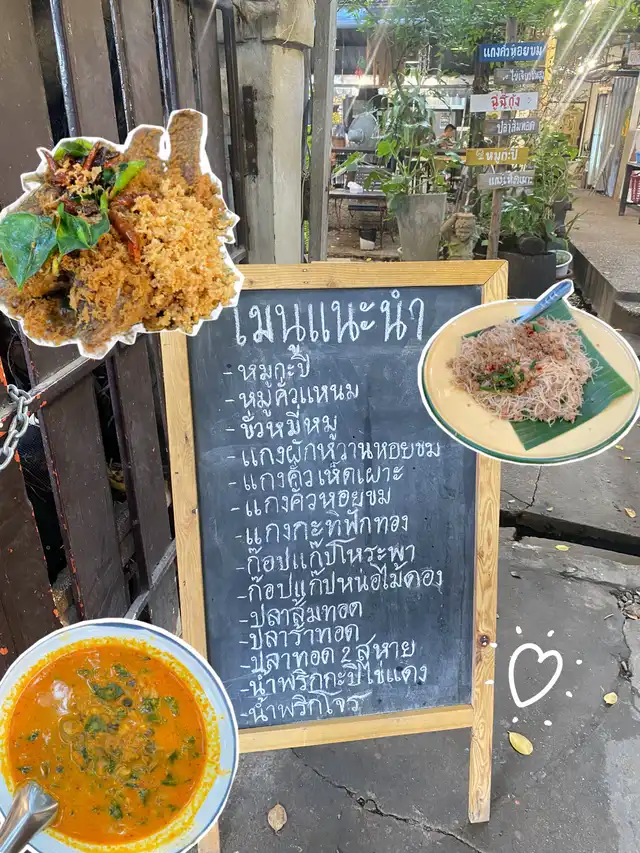 แกงคั่วหอยขม
ไข่เจียวชะอม
ฉู่ฉี่กุ้ง
ปลาส้มทอด
หมูกะปิ
แกงเห็ดเผาะ
เมนูแนะนำ
- หมูกะปิ
- หมูคั่วแหนม
- ขั่วหมี่หมู
- แกงผักหวานหอยขม
- แกงคั่วเห็ดเผาะ
- แกงคั่วหอยขม
- แกงกะทิฟักทอง
- ก๊อปแก๊ปโหระพา
- ก๊อปแก๊ปหน่อไม้ดอง
- ปลาส้มทอด
- ปลาร้าทอด
- ปลาทอด 2 สหาย
- น้ำพริกกะปิไข่แดง
- น้ำพริกโจร